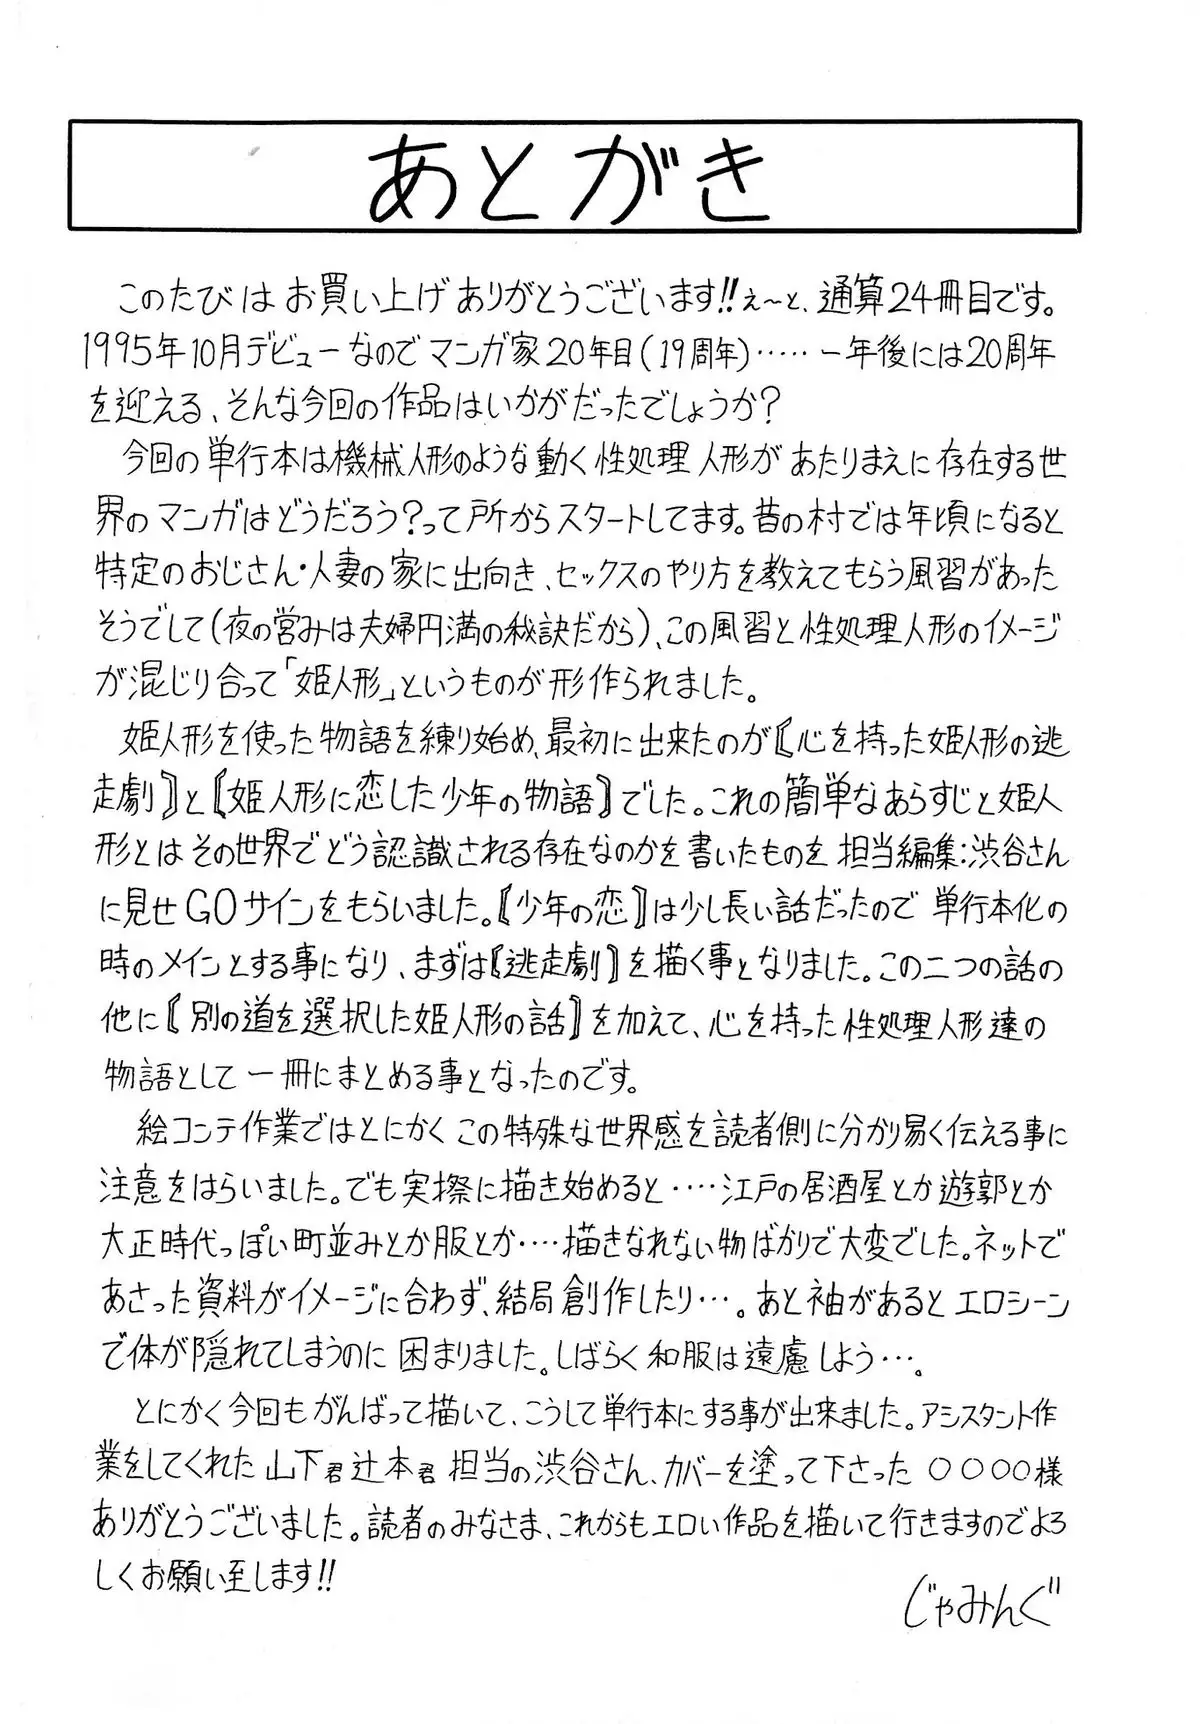 あとがき
このたびはお買い上げありがとうございます!!えーと、通算24冊目です。
1995年10月デビューなのでマンガ家20年目(19周年)……一年後には20周年
を迎える、そんな今回の作品はいかがだったでしょうか?
今回の単行本は機械人形のような動く性処理人形があたりまえに存在する世
界のマンガはどうだろう?って所からスタートしてます。昔の村では年頃になると
特定のおじさん・人妻の家に出向き、セックスのやり方を教えてもらう風習があった
そうでして(夜の営みは夫婦円満の秘訣だから)、この風習と性処理人形のイメージ
が混じり合って「姫人形」というものが形作られました。
姫人形を使った物語を練り始め、最初に出来たのが〘心を持った姫人形の逃
走劇〙と〘姫人形に恋した少年の物語〙でした。これの簡単なあらすじと姫人
形とはその世界でどう認識される存在なのかを書いたものを担当編集:渋谷さん
に見せGOサインをもらいました。〘少年の恋〙は少し長い話だったので単行本化の
時のメインとする事になり、まずは〘逃走劇〙を描く事となりました。この二つの話の
他に〘別の道を選択した姫人形の話〙を加えて、心を持った性処理人形達の
物語として一冊にまとめる事となったのです。
絵コンテ作業ではとにかくこの特殊な世界感を読者側に分かり易く伝える事に
注意をはらいました。でも実際に描き始めると‥‥江戸の居酒屋とか遊郭とか
大正時代っぽい町並みとか服とか‥‥描きなれない物ばかりで大変でした。ネットで
あさった資料がイメージに合わず、結局創作したり…。あと袖があるとエロシーン
で体が隠れてしまうのに困まりました。しばらく和服は遠慮しよう…。
とにかく今回もがんばって描いて、こうして単行本にする事が出来ました。アシスタント作
業をしてくれた山下君辻本君担当の渋谷さん、カバーを塗って下さった〇〇〇〇様
ありがとうございました。読者のみなさま、これからもエロい作品を描いて行きますのでよろ
しくお願い至します!!
じゃみんぐ